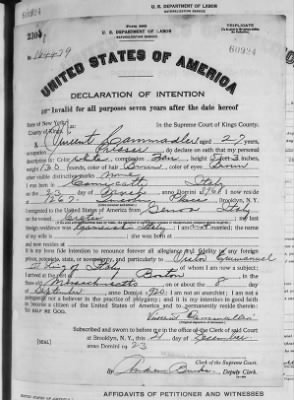 U. S. DEPARTMENT OF LABOR
NATURALIZATION SERVICE
TRIPLICATE
60924
U. S. DEPARTMENT OF LABOR
NATURALIZATION SERVICE
UNITED STATES OF AMERICA
DECLARATION OF INTENTION
Invalid for all purposes seven years after the date hereof
State of New York,
County of Kings,
In the Supreme Court of Kings County.
I, Vincent aged 27 years,
occupation do declare on oath that my personal
description is: Color white, complexion height 5 feet 3 inches,
weight 130 pounds, color of hair Brown, color of eyes Brown
other visible distinctive marks none
I was born in Italy
on the day of anno Domini I now reside
at 1267 Place Brooklyn, N. Y.
I emigrated to the United States of America from Genova Italy
on the vessel my last
foreign residence was Italy; I am married; the name
of my wife is she was born at
and now resides at
It is my bona fide intention to renounce forever all allegiance and fidelity to any foreign
prince, potentate, state, or sovereignty, and particularly to Victor Emmanuel
King of Italy of whom I am now a subject;
I arrived at the port of Boston in the
State of Massachusetts on or about the 8 day
of September anno Domini 1920; I am not an anarchist; I am not a
polygamist nor a believer in the practice of polygamy; and it is my intention in good faith
to become a citizen of the United States of America and to permanently reside therein:
SO HELP ME GOD.
Subscribed and sworn to before me in the office of the Clerk of said Court
[SEAL] at Brooklyn, N. Y., this 21 day of December
anno Domini 1923
Clerk of the Supreme Court.
By Deputy Clerk.
AFFIDAVITS OF PETITIONER AND WITNESSES